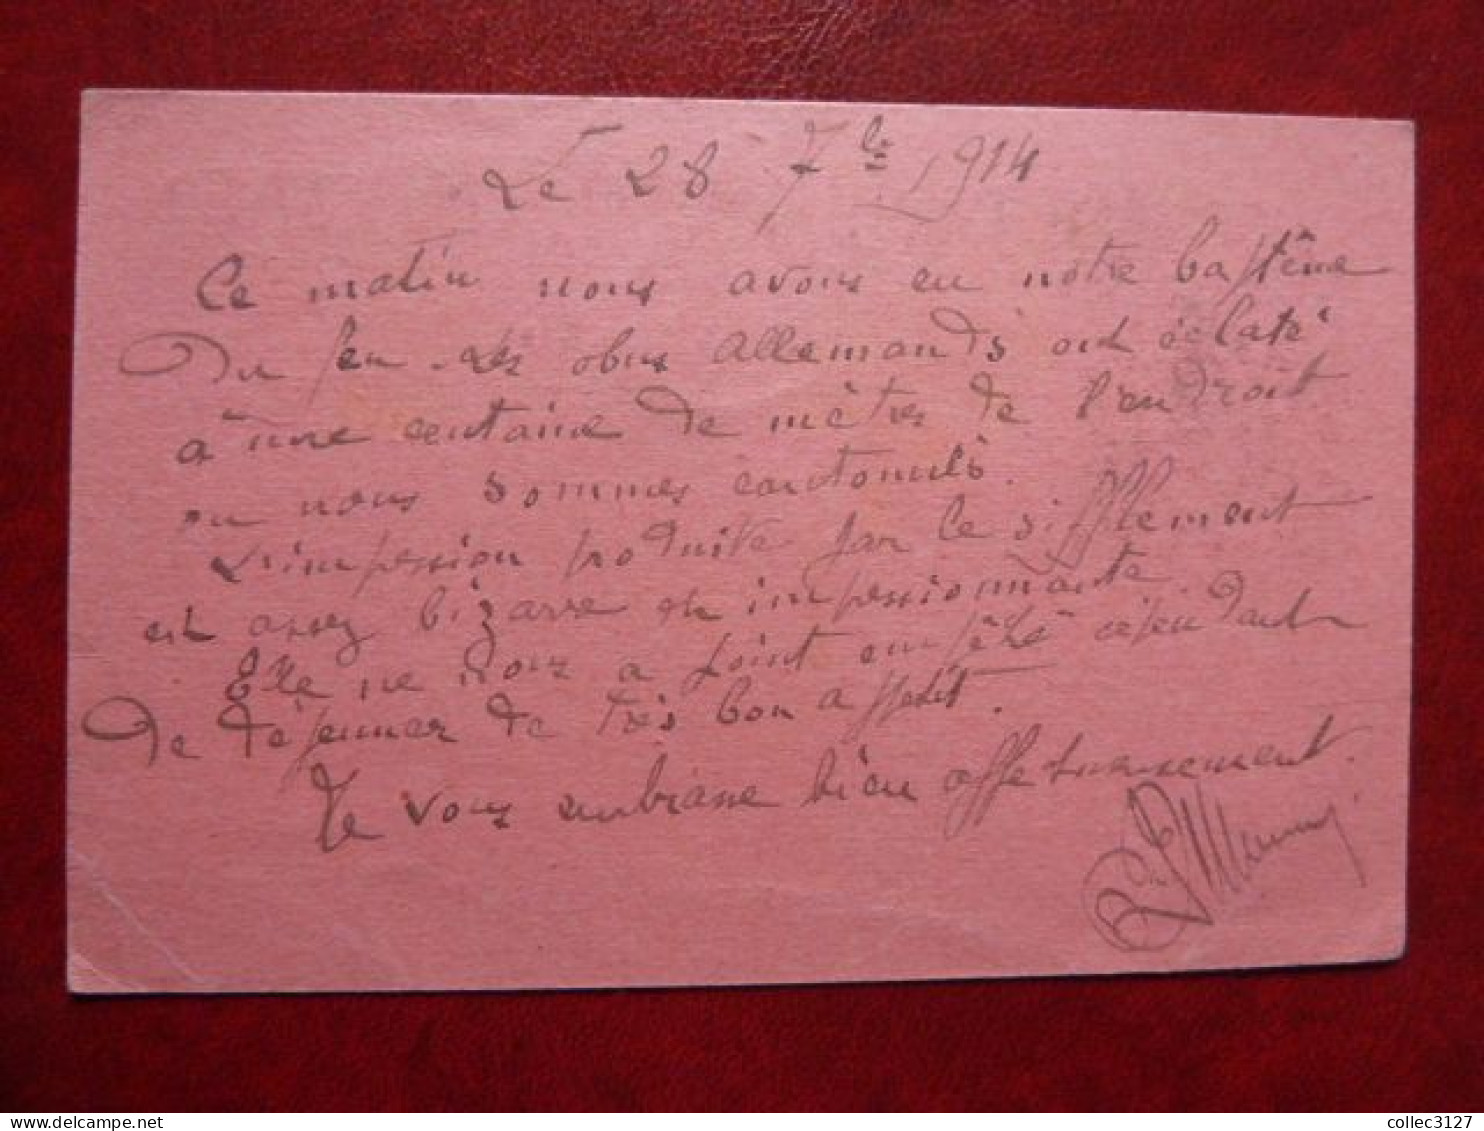 Le 28 7bre 1914
Ce matin nous avons eu notre baptême
Du feu. Les obus Allemands ont éclaté
à une centaine de mètres de l'endroit
ou nous sommes cantonnés.
L'impression produite par le sifflement
est assez bizarre et impressionnante
Elle ne nous a point empêché cependant
De déjeuner de très bon appetit.
Je vous embrasse bien affectueusement.
www.delcampe.net
collec3127